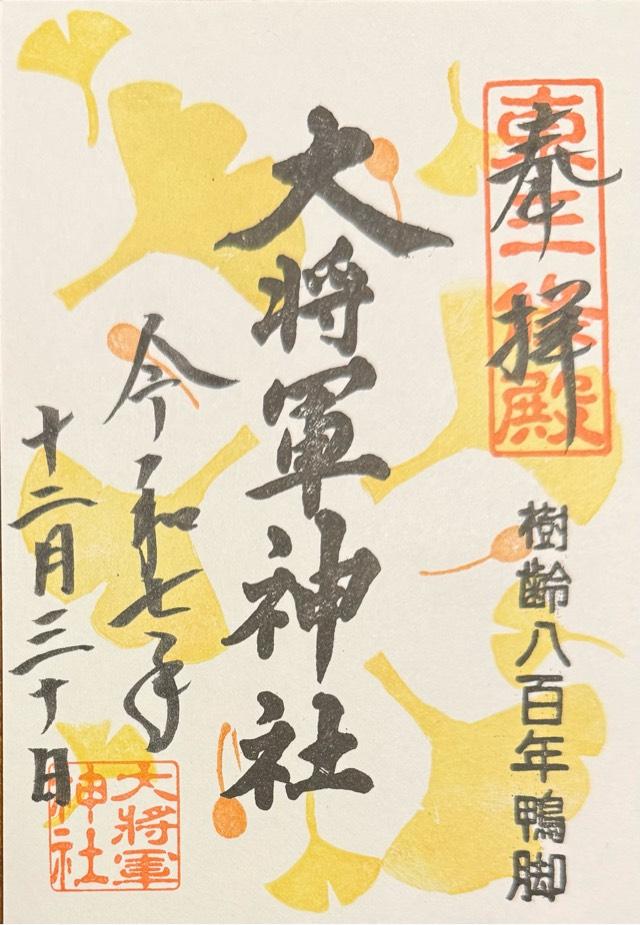 奉拝
東三條殿
樹齢八百年鴨脚
大将軍神社
令和七年
十二月三十日
大將軍
神社